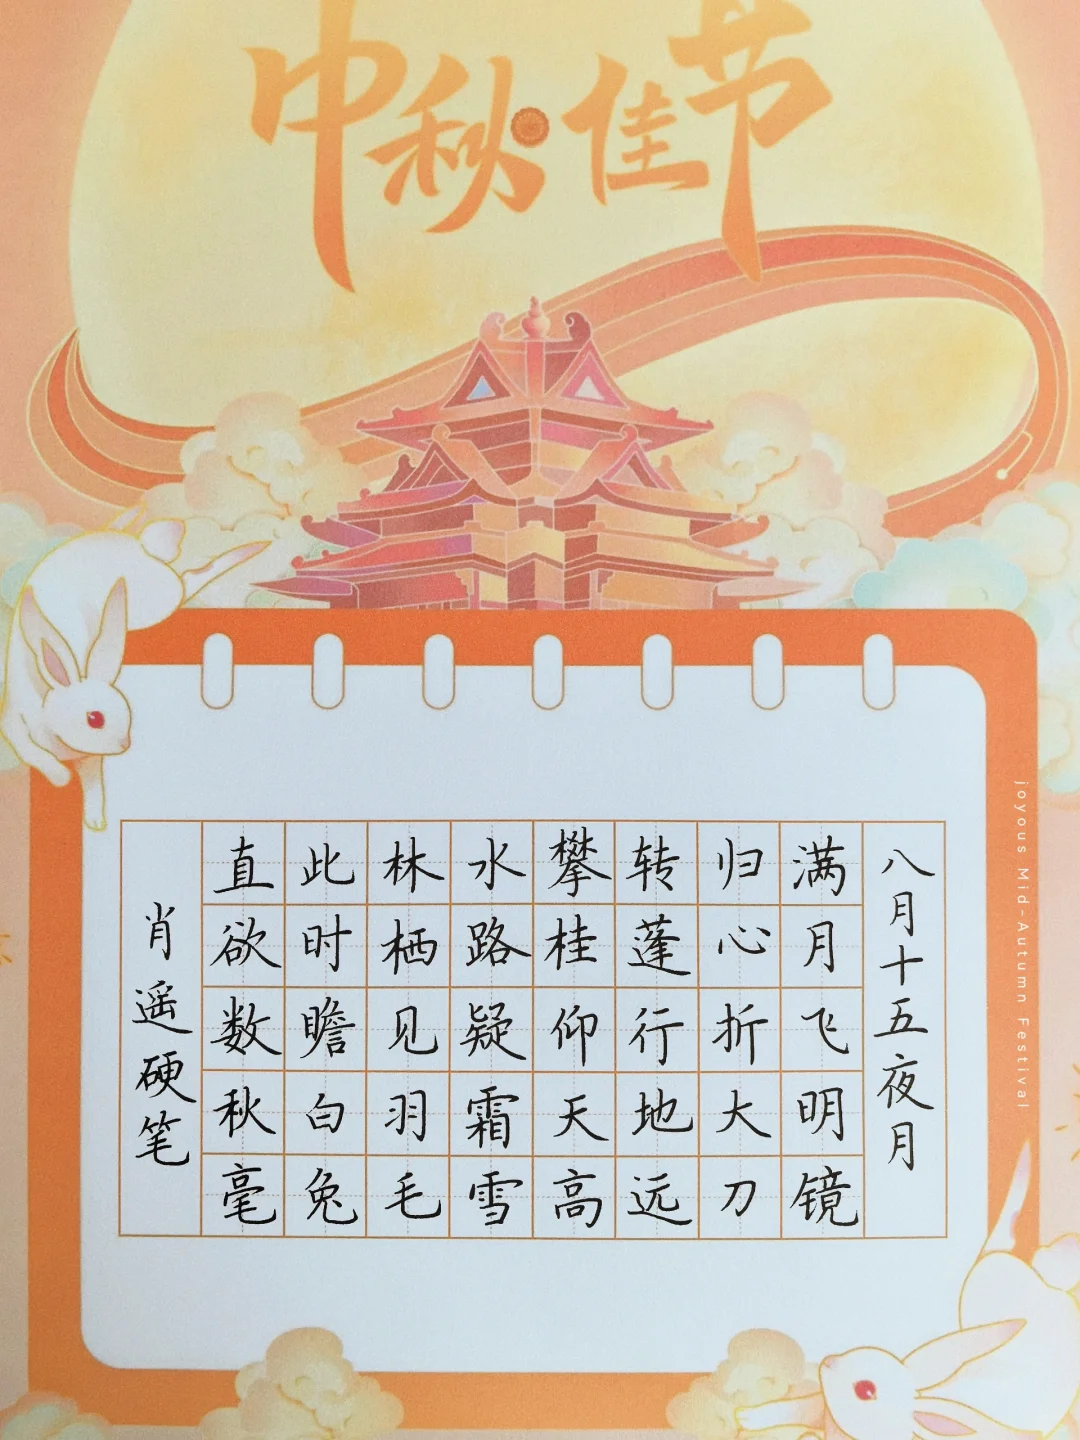 中秋佳节
八月十五夜月
满月飞明镜
归心折大刀
转蓬行地远
攀桂仰天高
水路疑霜雪
林栖见羽毛
此时瞻白兔
直欲数秋毫
肖遥硬笔
joyous Mid-Autumn Festival